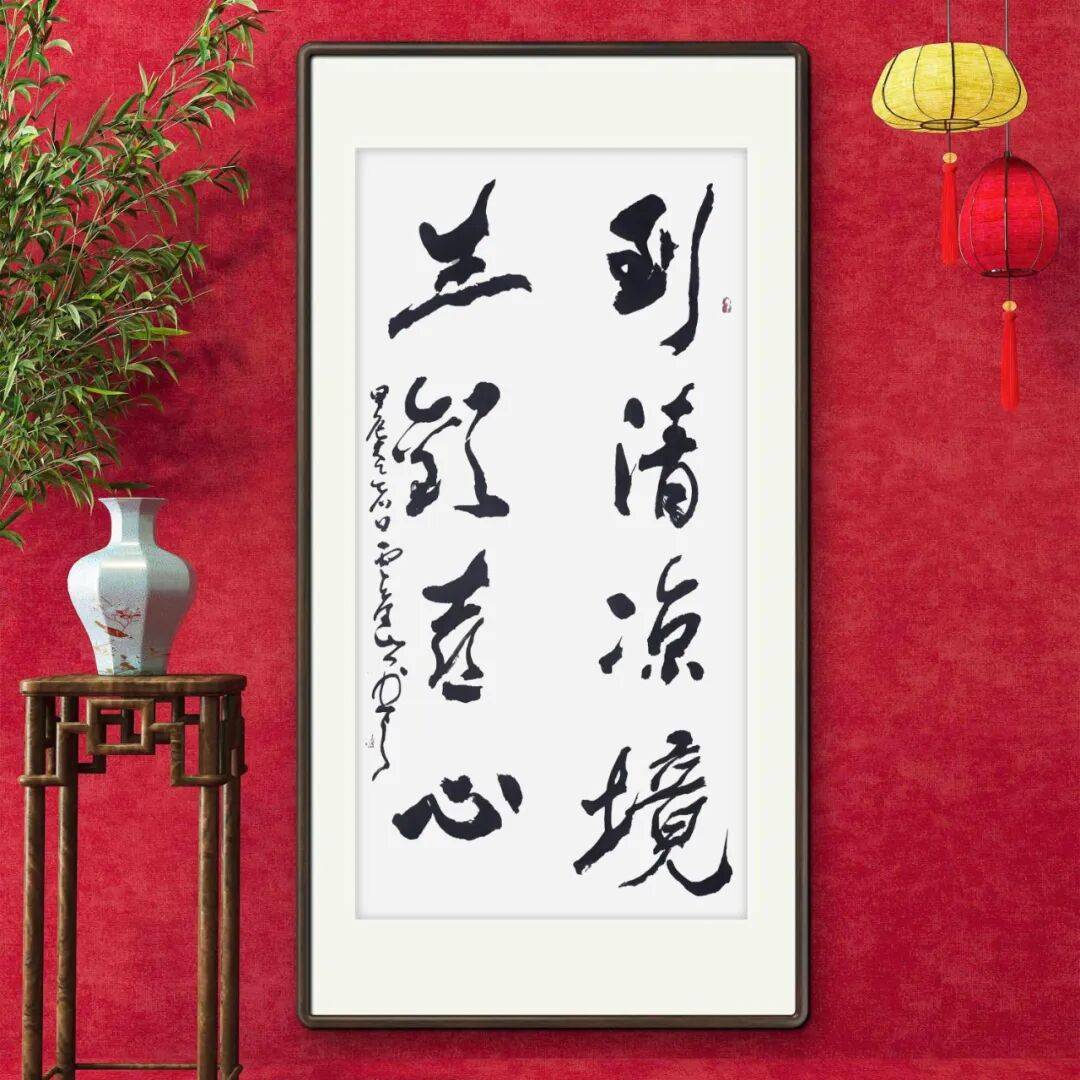 到清凉境
生歡喜心
甲辰